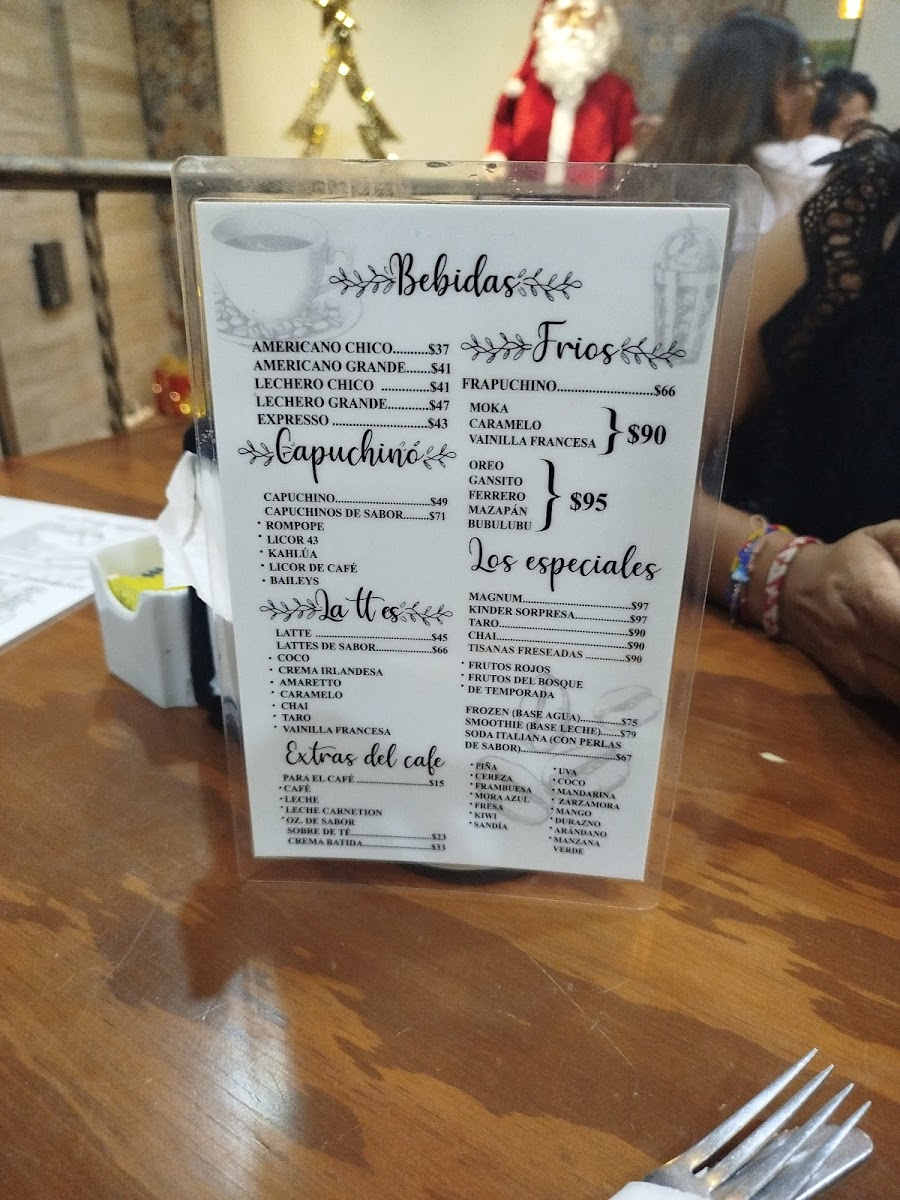 Bebidas
AMERICANO CHICO..........$37
AMERICANO GRANDE.......$41
LECHERO CHICO .............$41
LECHERO GRANDE...........$47
EXPRESSO ........................$43
Capuchino
CAPUCHINO............................$49
CAPUCHINOS DE SABOR........$71
• ROMPOPE
• LICOR 43
• KAHLÚA
• LICOR DE CAFÉ
• BAILEYS
Lattes
LATTE .................................$45
LATTES DE SABOR.....................$66
• COCO
• CREMA IRLANDESA
• AMARETTO
• CARAMELO
• CHAI
• TARO
• VAINILLA FRANCESA
Extras del cafe
PARA EL CAFÉ ........................$15
• CAFÉ
• LECHE
• LECHE CARNETION
• OZ. DE SABOR
SOBRE DE TÉ.......................$23
CREMA BATIDA.......................$33
Frios
FRAPUCHINO.........................$66
MOKA
CARAMELO
VAINILLA FRANCESA
$90
OREO
GANSITO
FERRERO
MAZAPÁN
BUBULUBU
$95
Los especiales
MAGNUM...............................$97
KINDER SORPRESA................$97
TARO.....................................$90
CHAI......................................$90
TISANAS FRESEADAS ............$90
• FRUTOS ROJOS
• FRUTOS DEL BOSQUE
• DE TEMPORADA
FROZEN (BASE AGUA)..............$75
SMOOTHIE (BASE LECHE)......$79
SODA ITALIANA (CON PERLAS
DE SABOR)...........................$67
• PIÑA
• CEREZA
• FRAMBUESA
• MORA AZUL
• FRESA
• KIWI
• SANDÍA
• UVA
• COCO
• MANDARINA
• ZARZAMORA
• MANGO
• DURAZNO
• ARÁNDANO
• MANZANA
VERDE